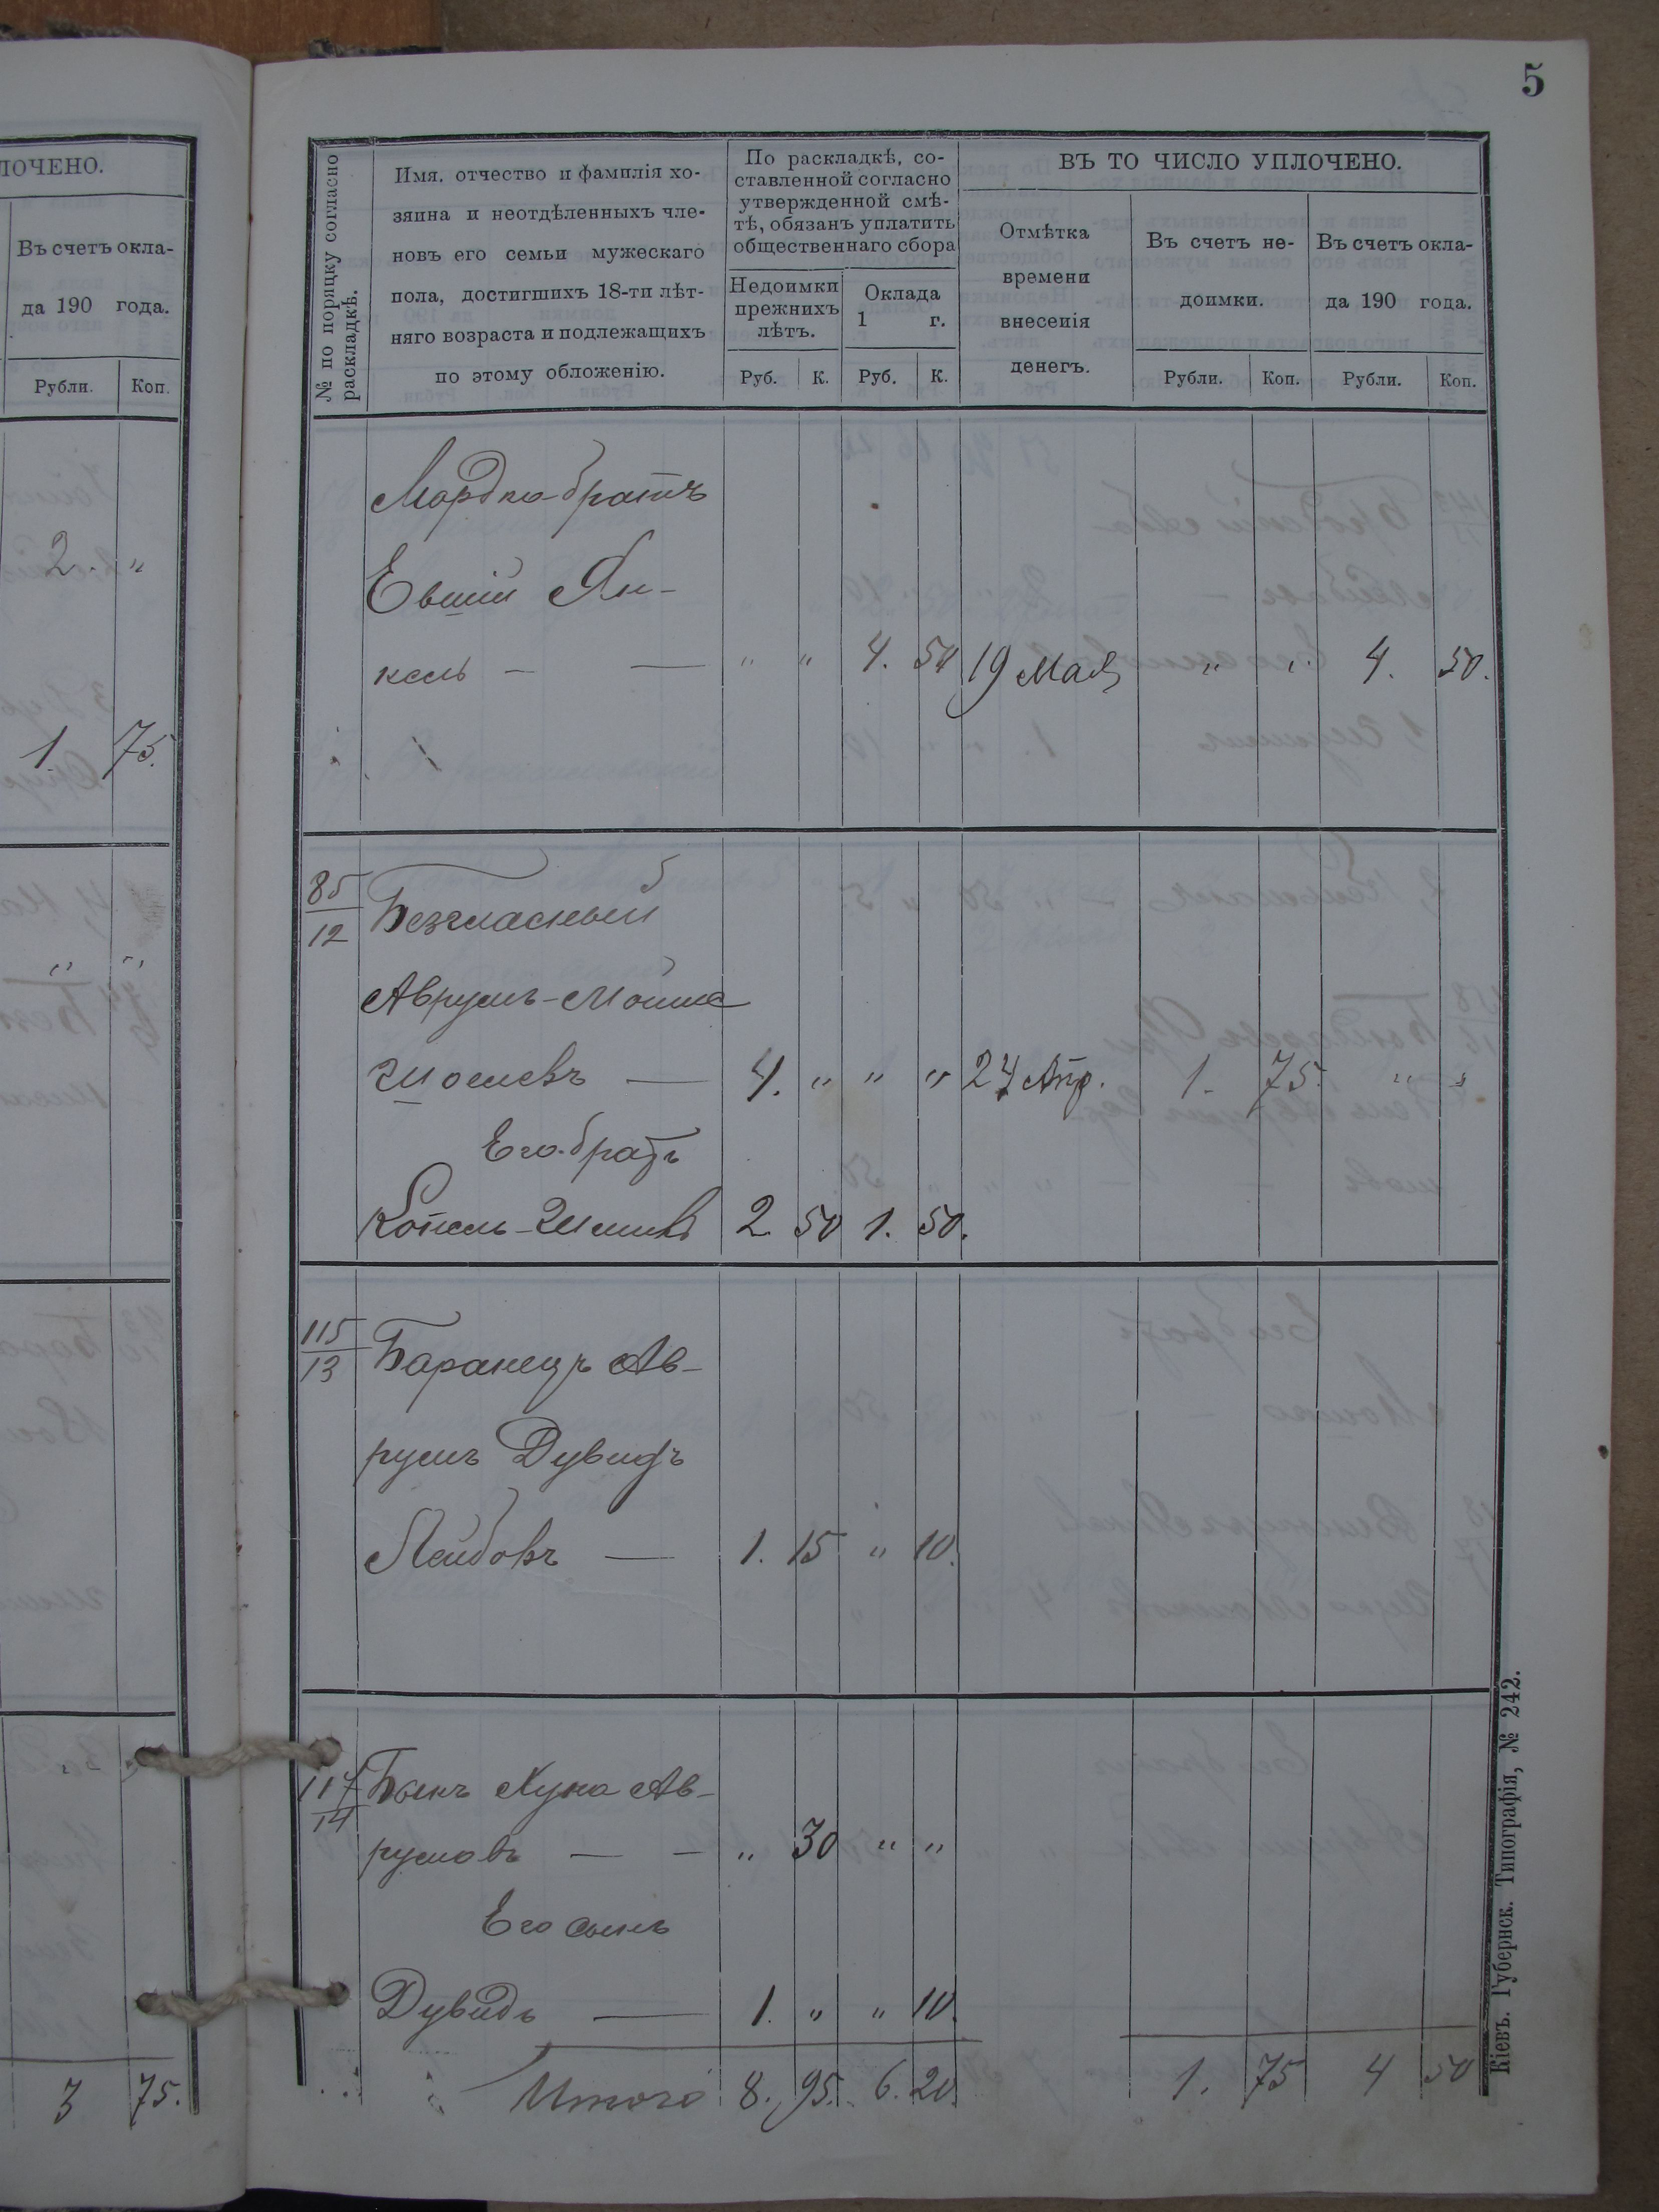 5
ЛОЧЕНО.
Въ счетъ окла-
да 190 года.
Рубли. Коп.
2. "
1. 75.
" "
3 75.
№ по порядку согласно
раскладкѣ.
Имя, отчество и фамилія хо-
зяина и неотдѣленныхъ чле-
новъ его семьи мужескаго
пола, достигшихъ 18-ти лѣт-
няго возраста и подлежащихъ
по этому обложенію.
По раскладкѣ, со-
ставленной согласно
утвержденной смѣ-
тѣ, обязанъ уплатить
общественнаго сбора
Недоимки
прежнихъ
лѣтъ.
Оклада
1 г.
Руб. К. Руб. К.
ВЪ ТО ЧИСЛО УПЛОЧЕНО.
Отмѣтка
времени
внесенія
денегъ.
Въ счетъ не-
доимки.
Въ счетъ окла-
да 190 года.
Рубли. Коп. Рубли. Коп.
Мордко-братъ
Евши Ян-
кель — — " " 4. 50 19 Мая " " 4. 50.
85/12 Безгласный
Аврумъ-Мошка
— 4. " " " 24 Апр. 1. 75. " "
Его братъ
Копель- 2. 50 1. 50.
115/13 Баранецъ Ав-
румъ Дувидъ
Лейбовъ — 1. 15 " 10.
117/14 Быкъ Хуна Ав-
румовъ — — " 30 " "
Его сынъ
Дувидъ — 1. " " 10.
Итого 8. 95. 6. 20. 1. 75 4 50
Кіевъ. Губернск. Типографія, № 242.